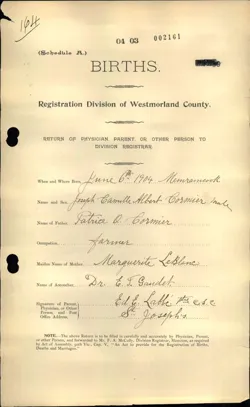 164
04 03 002161
(Schedule A.)
BIRTHS.
Registration Division of Westmorland County.
RETURN OF PHYSICIAN PARENT, OR OTHER PERSON TO
DIVISION REGISTRAR.
When and Where Born, June 6th 1904 Memramcook
Name and Sex, Joseph Camille Albert Cormier male
Name of Father, Patrice O. Cormier
Occupation, Farmer
Maiden Name of Mother, Marguerite LeBlanc
Name of Accoucheur, Dr. E. T. Gaudet
Signature of Parent,
Physician, or Other
Person, and Post
Office Address,
St. Josephs
NOTE.—The above Return is to be filled in carefully and accurately by Physician, Parent,
or other Person, and forwarded to Division Registrar, Moncton, as required
by Act of Assembly, "An Act to provide for the Registration of Births,
Deaths and Marriages."